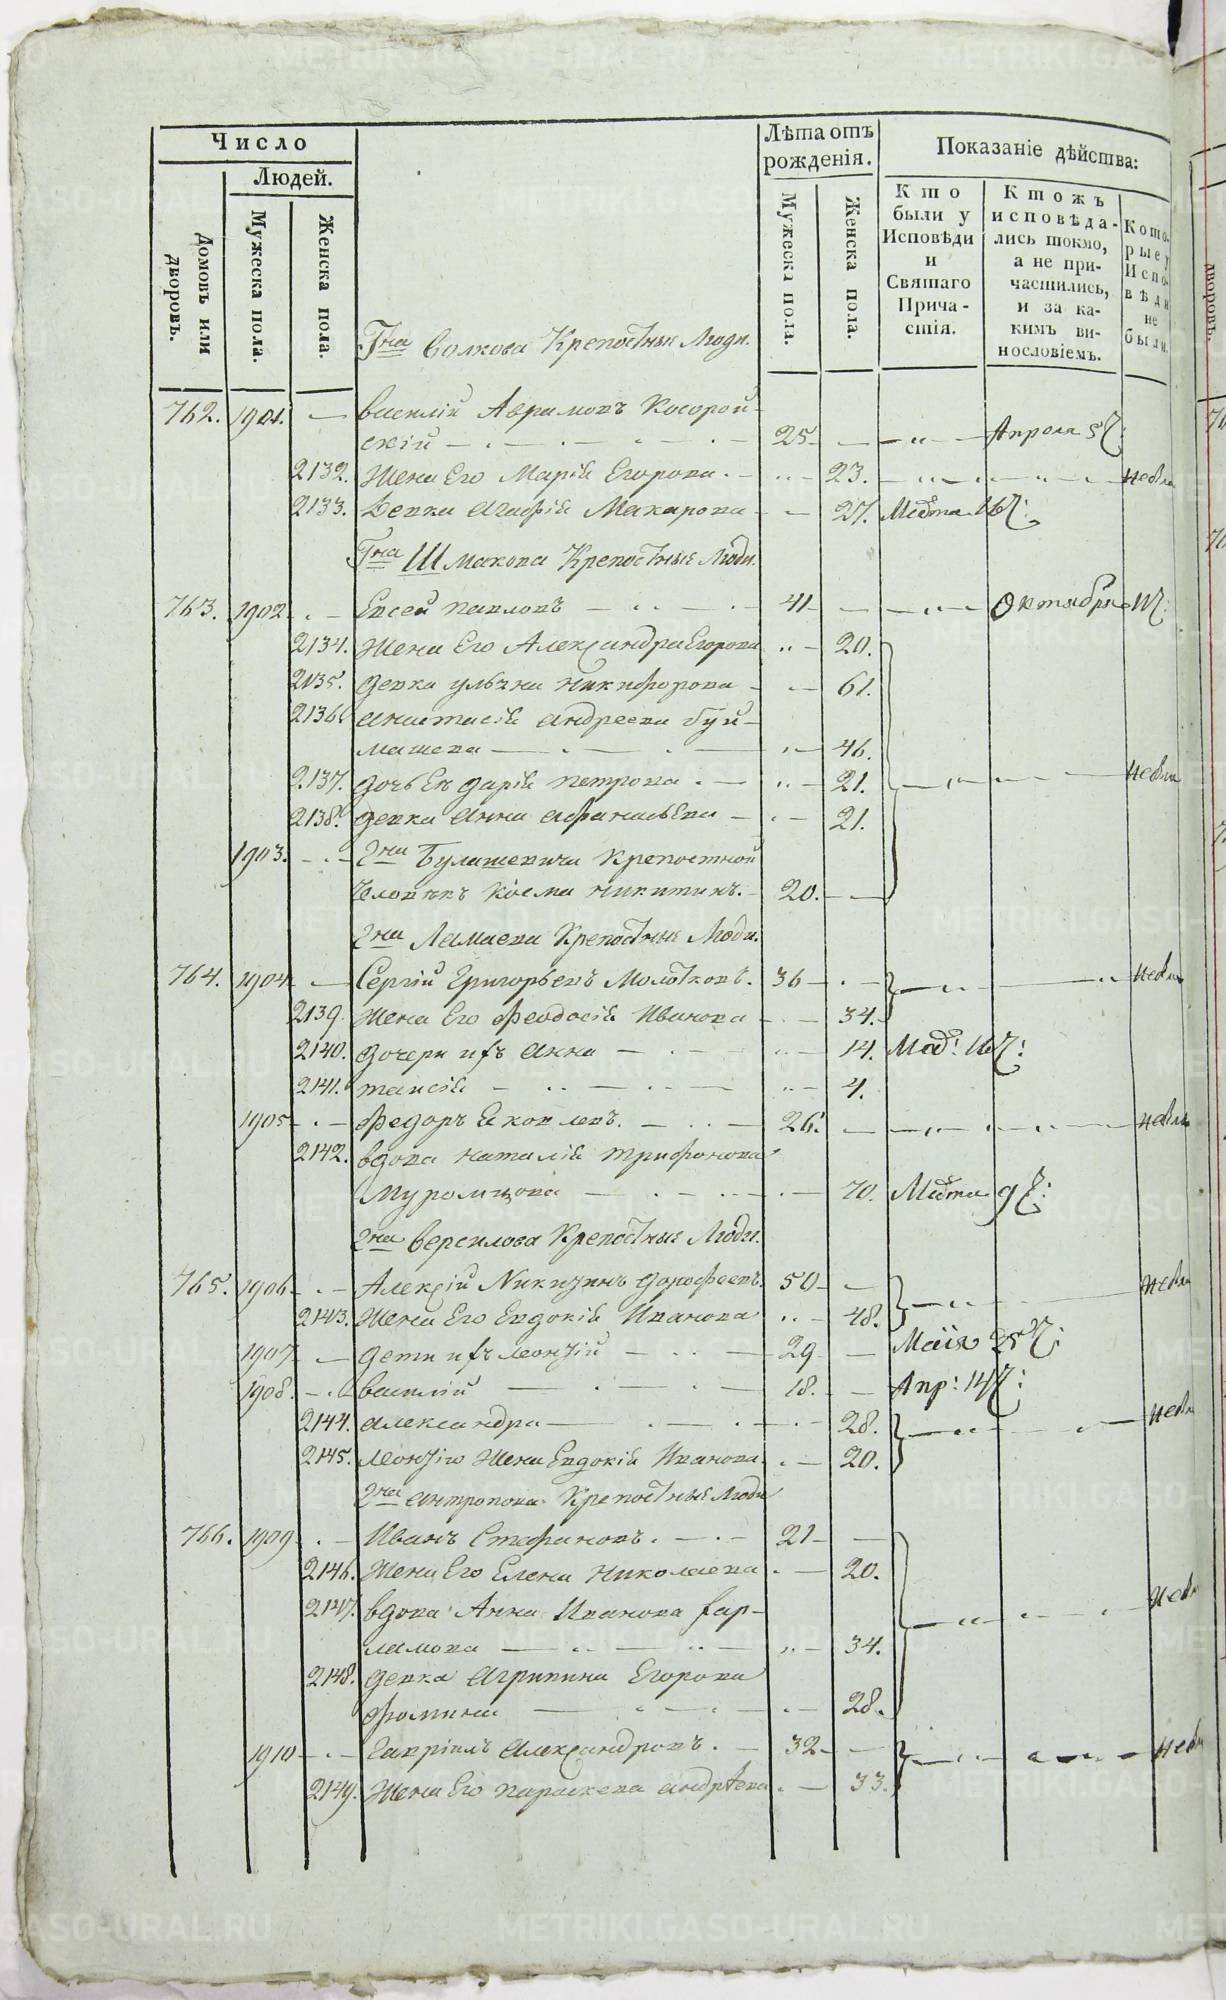 Число
Людей.
Домовъ или дворовъ.
Мужеска пола.
Женска пола.
Лѣта отъ рожденія.
Мужеска пола.
Женска пола.
Показаніе дѣйства:
Кто были у Исповѣди и Святаго Причастія.
Ктожъ исповѣдались токмо, а не причастились, и за какимъ винословіемъ.
Которые у Исповѣди не были.
Гна Волкова Крепостныи Люди.
762. 1901. — Василій Аврамовъ Косорой-
скій — 25 — — Апреля 5 Ч:
2132. Жена Его Марія Егорова. — 23. — неявл
2133. Девка Агафія Макарова — 27. Марта 16 Ч:
Гна Шмакова Крепостные Люди.
763. 1902 — Евсей Павловъ — 41 — — Октября 11 Ч:
2134. Жена Его Александра Егорова — 20.
2135. девка Ульяна Никифорова — 61.
2136 Анастасія Андреева Буй-
машева — 46.
2137. дочь Ея Дарія Петрова. — 21. — неявл
2138. девка Анна Афанасьева — 21.
1903. — Гна Булашевича Крепостной
Человѣкъ Косма Никитинъ. — 20. —
Гна Ламаева Крепостные Люди.
764. 1904 — Сергій Григорьевъ Молотковъ. 36 — — неявл
2139. Жена Его Феодосія Иванова — 34.
2140. дочери ихъ Анна — 14. Мар: 16 Ч:
2141. Таисія — 4.
1905 — Федоръ Яковлевъ. — 26. — неявл
2142. вдова Наталія Трифонова
Муромцова — 70. Марта 9 Ч:
Гна Версилова Крепостные Люди.
765. 1906 — Алексій Никитинъ Дорофеевъ. 50 — — неявл
2143. Жена Его Евдокія Иванова — 48.
1907 — дети ихъ Леонтій — 29 — Маія 25 Ч:
1908. — Василій — 18. — Апр: 14 Ч:
2144. Александра — 28. — неявл
2145. Леонтію Жена Евдокія Иванова. — 20.
Гна Антропова Крепостные Люди
766. 1909 — Иванъ Стефановъ. — 21 —
2146. Жена Его Елена Николаева — 20.
2147. вдова Анна Иванова Хар-
ламова — 34. — неяв
2148. девка Агрипина Егорова
Фомина — 28.
1910 — Гавріилъ Александровъ. — 32 — — неяв
2149. Жена Его Параскева Андрѣева — 33.
дворовъ.
METRIKI.GASO-URAL.RU